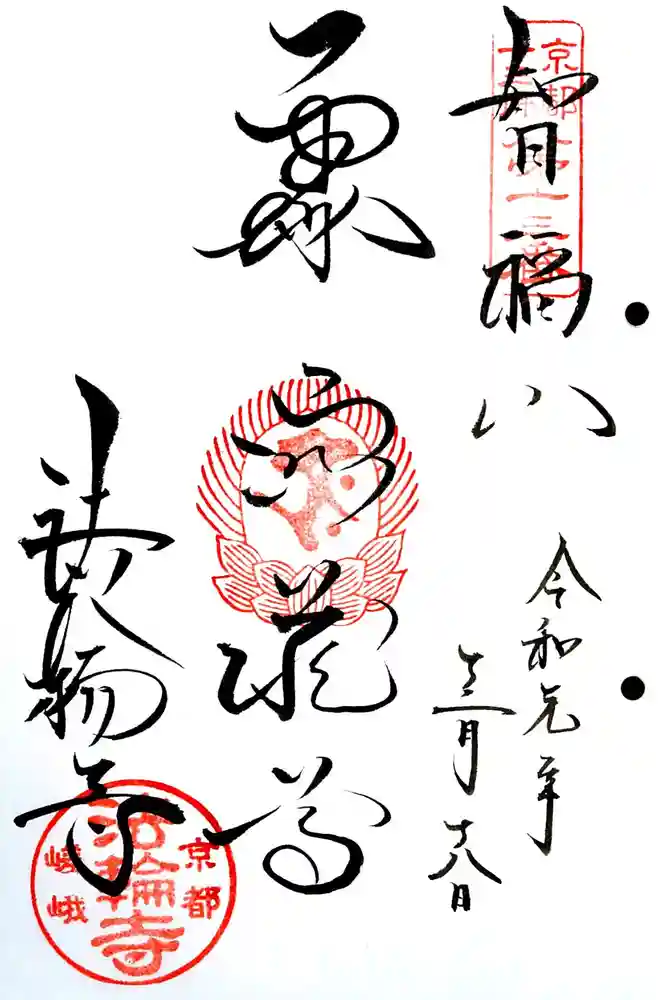 京都
十三佛
第十三番
智福山
令和元年
十二月
十八日
虚空蔵尊
法輪寺
京都
法輪寺
嵯峨